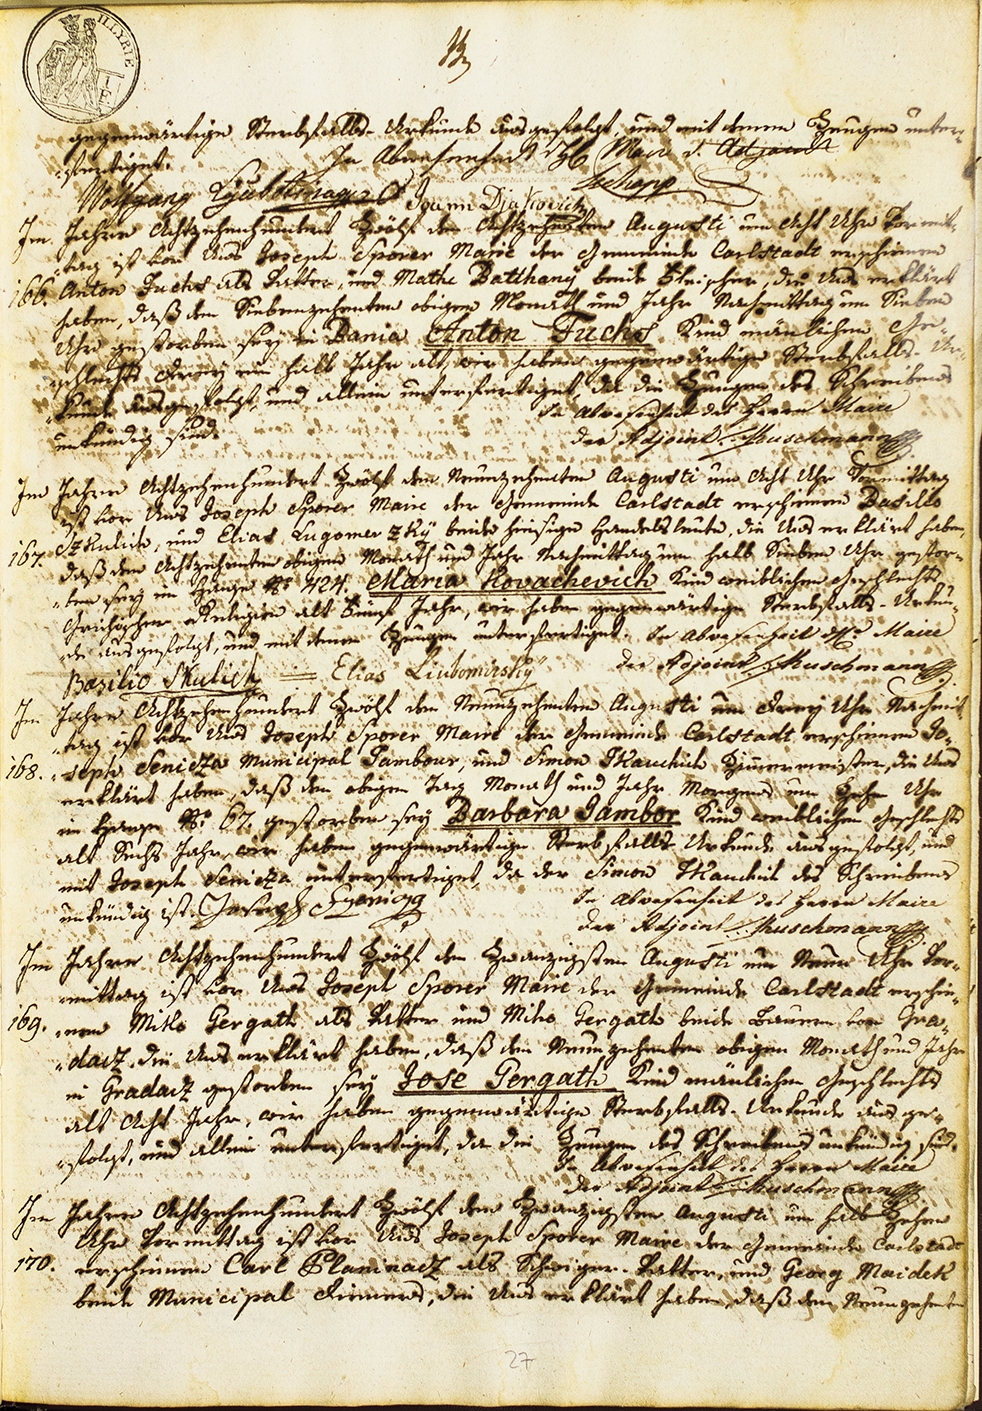 ILLYRIE
1 F
gegenwärtige Sterbfalls-Urkunde ausgefolgt, und mit denen Zeugen unter-
„fertiget. In Abwesenheit des Maire d. Adjoint
Wolfgang Joann Diakovich
Im Jahre Achtzehenhundert Zwölf den Achtzehnten Augusti um Acht Uhr Vormit-
„tag ist vor Uns Joseph Sporer Maire der Gemeinde Carlstadt erschienen
166. Anton Fuchs als Vatter, und Mathe Batthany beide Fleischer, die Uns erklärt
haben, daß den Siebenzehenten obigen Monath und Jahr Nachmittag um Sieben
Uhr gestorben sey in Bania Anton Fuchs Kind mänlichen Ge-
„schlechts drey ein halb Jahr alt, wir haben gegenwärtige Sterbfalls-Ur-
„kunde ausgefolgt, und allein unterfertiget, da die Zeugen des Schreibens
unkündig sind. In Abwesenheit des Herrn Maire
der Adjoint Muschmann
Im Jahre Achtzehenhundert Zwölf den Neunzehenten Augusti um Acht Uhr Vormittag
ist vor Uns Joseph Sporer Maire der Gemeinde Carlstadt erschienen Basilio
167. Szkulich, und Elias Lugomerzky beide hiesige Handelsleute, die Uns erklärt haben,
daß den Achtzehenten obigen Monath und Jahr Nachmittag um halb Sieben Uhr gestor-
„ben sey im Hause No 424. Maria Kovachevich Kind weiblichen Geschlechts
Religion alt Jahr, wir haben gegenwärtige Sterbfalls-Urkun-
„de ausgefolgt, und mit denen Zeugen unterfertiget. In Abwesenheit H. Maire
Bazilio Skulich — Elias Liubomirsky der Adjoint Muschmann
Im Jahre Achtzehenhundert Zwölf den Neunzehenten Augusti um drey Uhr Nachmit-
„tag ist vor Uns Joseph Sporer Maire der Gemeinde Carlstadt erschienen Jo-
168. „seph Senicza Municipal Tambour, und Simon Zimmermeister, die Uns
erklärt haben, daß den obigen Tag Monath und Jahr Morgens um Zehn Uhr
im Hause No 67. gestorben sey Barbara Jambor Kind weiblichen Geschlechts
alt Sechs Jahr, wir haben gegenwärtige Sterbfalls Urkunde ausgefolgt, und
mit Joseph Senicza unterfertiget, da der Simon des Schreibens
unkündig ist. In Abwesenheit des Herrn Maire
der Adjoint Muschmann
Im Jahre Achtzehenhundert Zwölf den Zwanzigsten Augusti um Neun Uhr Vor-
„mittag ist vor Uns Joseph Sporer Maire der Gemeinde Carlstadt erschie-
169. „nen Mitko Gergath als Vatter und Miho Gergath beide Bauern von Gra-
„dacz, die Uns erklärt haben, daß den Neunzehenten obigen Monath und Jahr
in Gradacz gestorben sey Jose Gergath Kind mänlichen Geschlechts
alt Acht Jahr, wir haben gegenwärtige Sterbfalls-Urkunde ausge-
„folgt, und allein unterfertiget, da die Zeugen des Schreibens unkündig sind.
In Abwesenheit des Herrn Maire
der Adjoint Muschmann
Im Jahre Achtzehenhundert Zwölf den Zwanzigsten Augusti um halb Zehen
Uhr Vormittag ist vor Uns Joseph Sporer Maire der Gemeinde Carlstadt
170. erschienen Carl Planinacz als Schwiger-Vatter, und Georg Maidek
beide Municipal Dieners, die Uns erklärt haben, daß den Neunzehenten
27